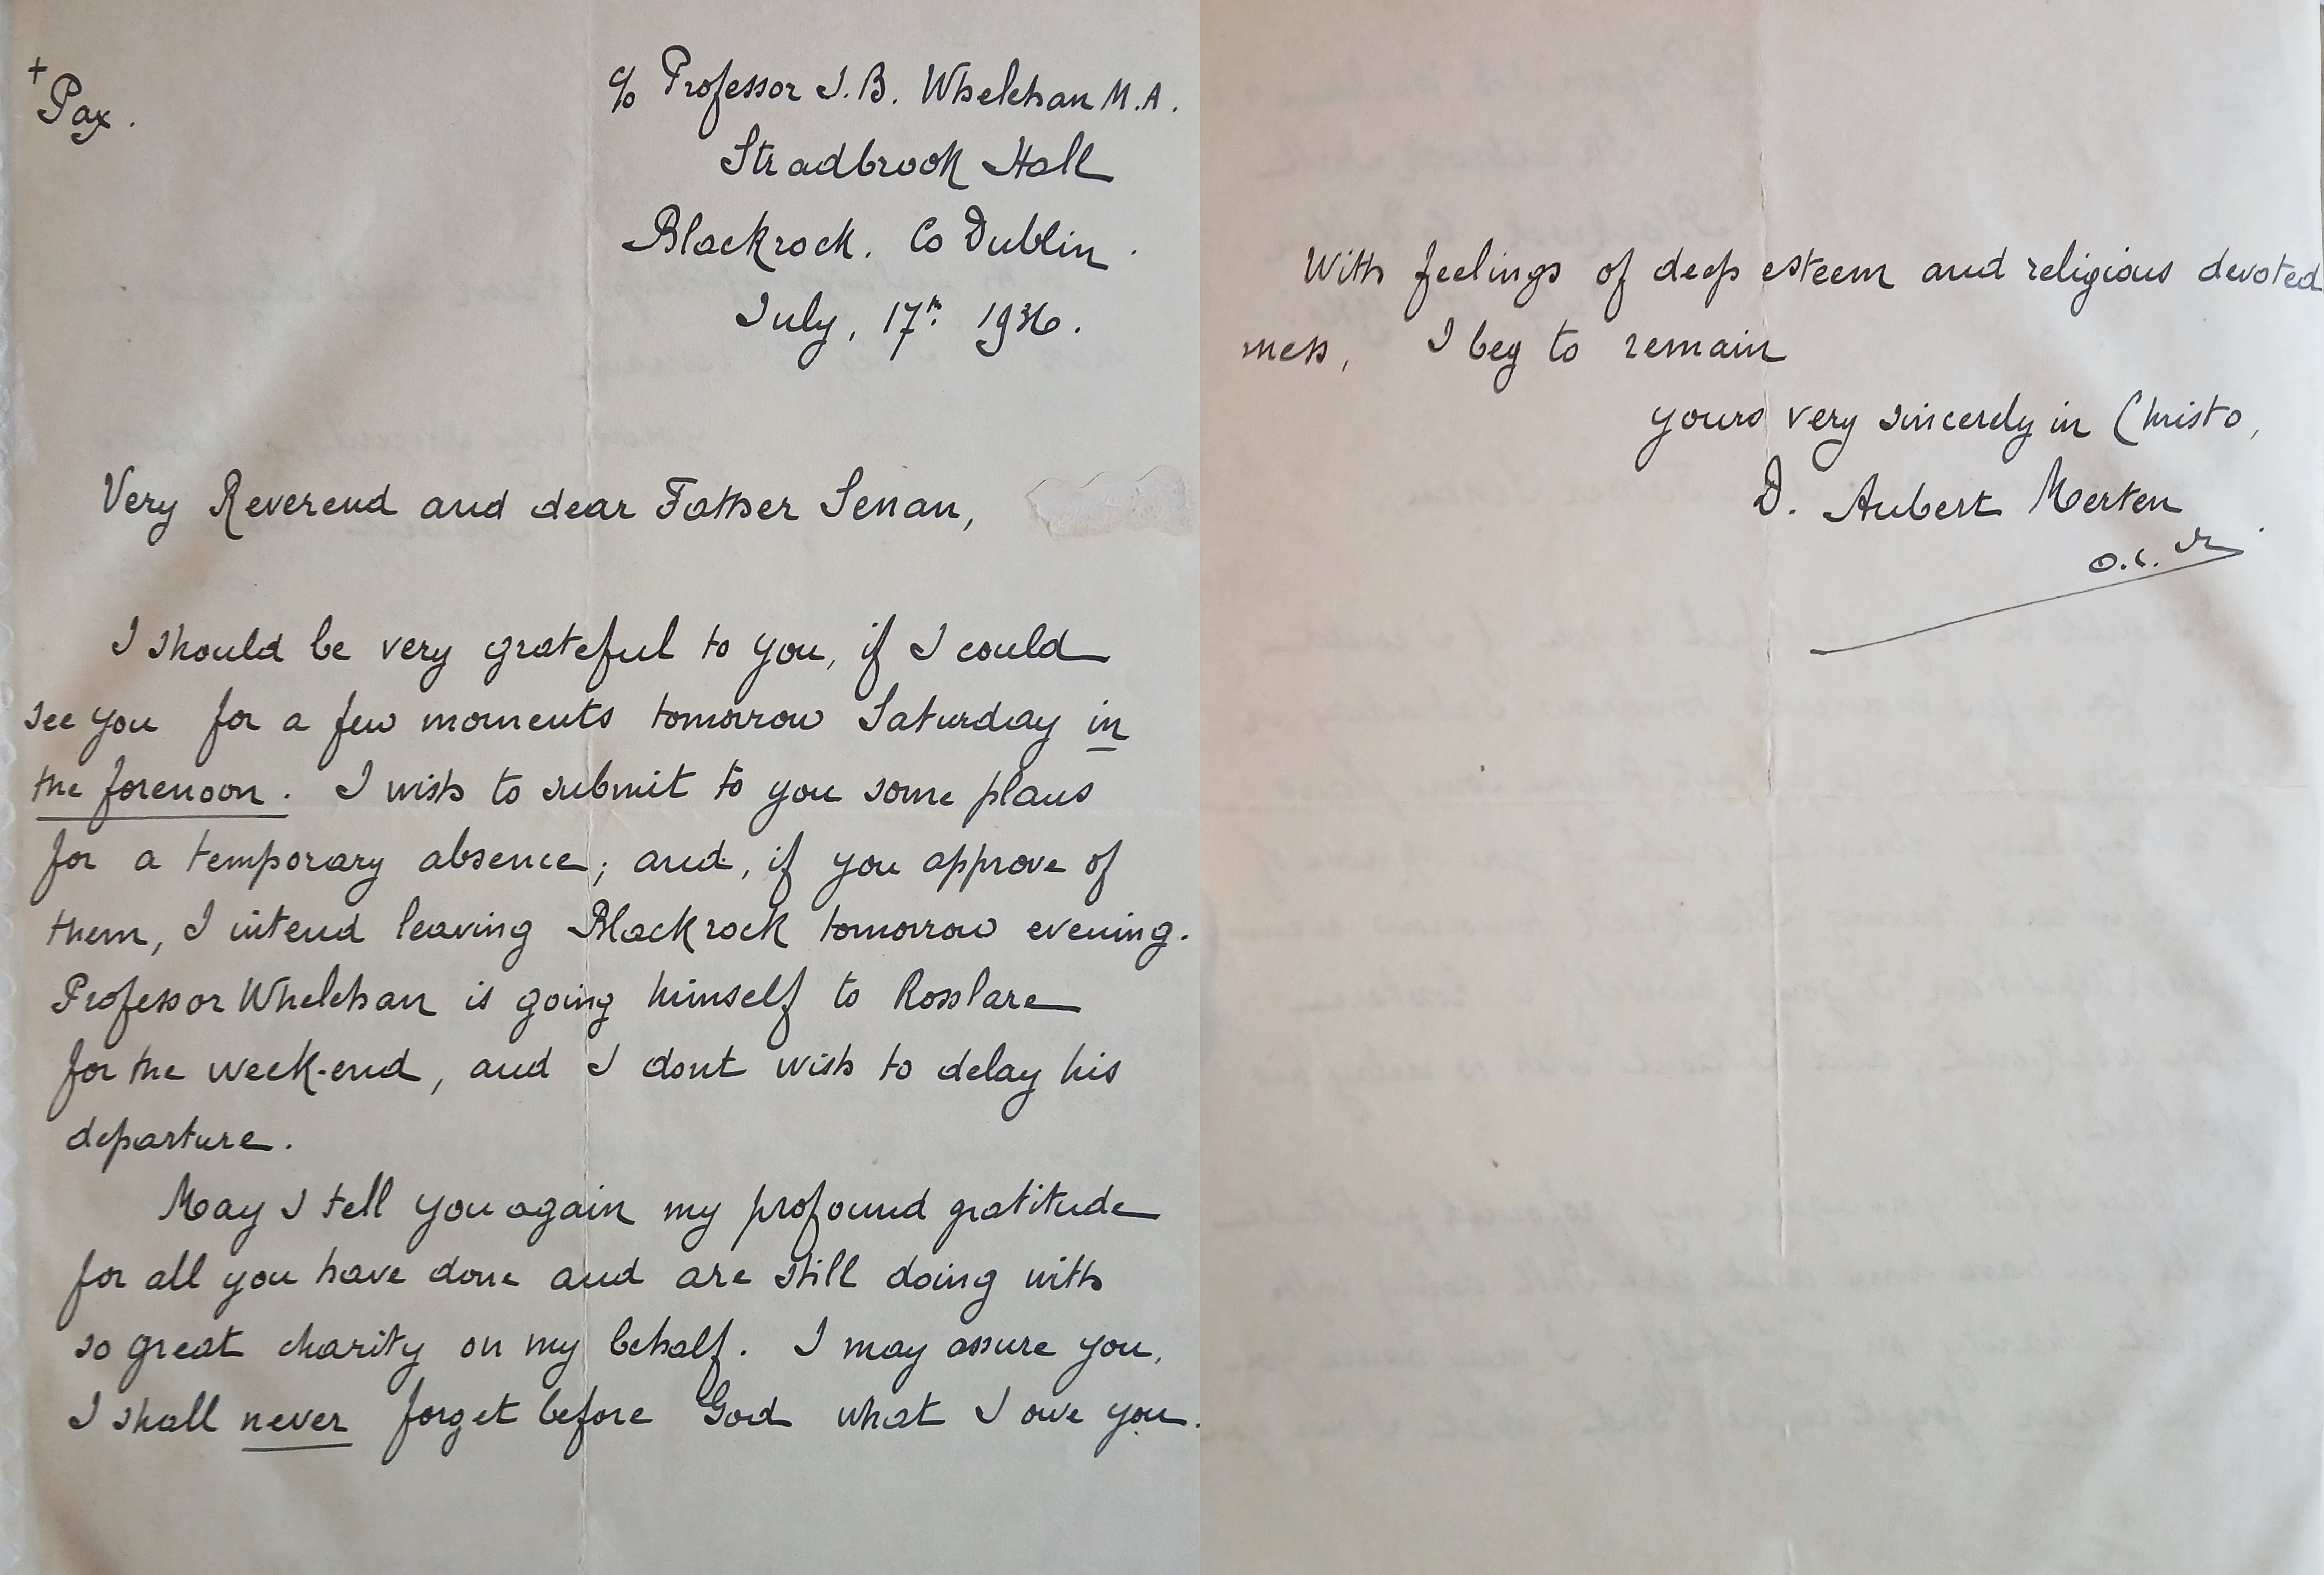 +
Pax.
c/o Professor J. B. Whelehan M.A.
Stradbrook Hall
Blackrock. Co Dublin.
July, 17th 1936.
Very Reverend and dear Father Senan,
I should be very grateful to you, if I could
see you for a few moments tomorrow Saturday in
the forenoon. I wish to submit to you some plans
for a temporary absence; and, if you approve of
them, I intend leaving Blackrock tomorrow evening.
Professor Whelehan is going himself to Rosslare
for the week-end, and I dont wish to delay his
departure.
May I tell you again my profound gratitude
for all you have done and are still doing with
so great charity on my behalf. I may assure you,
I shall never forget before God what I owe you.
With feelings of deep esteem and religious devoted
ness, I beg to remain
yours very sincerely in Christo,
D. Aubert Merten